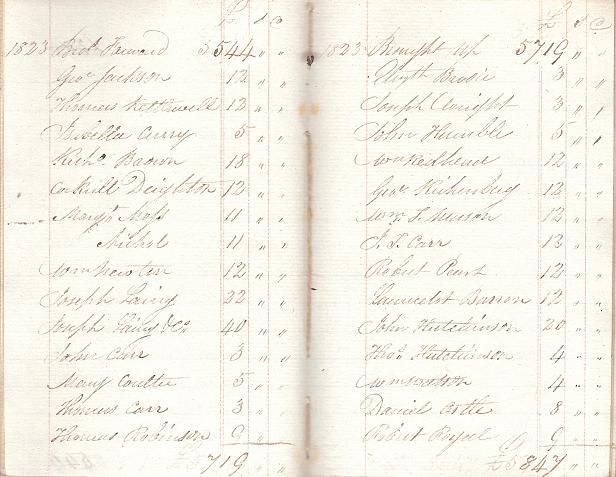 £ s d
1823 Brot Forward 5544 " "
Geo Jackson 12 " "
Thomas Kettlewell 12 " "
Isabella Curry 5 " "
Richd Brown 18 " "
Deighton 12 " "
Margt Moss 11 " "
Nichol 11 " "
Wm Newton 12 " "
Joseph Laing 22 " "
Joseph Laing & Co 40 " "
John Carr 3 " "
Mary Coulter 5 " "
Thomas Carr 3 " "
Thomas Robinson 9 " "
£5719 " "
£ s d
1823 Brought up 5719 " "
3 " "
Joseph Wright 3 " "
John Humble 5 " "
Wm Redhead 12 " "
Geo 12 " "
Wm 12 " "
J. T. Carr 12 " "
Robert 12 " "
Launcelot Barron 12 " "
John Hutchinson 20 " "
Thos Hutchinson 4 " "
Wm 4 " "
Daniel 8 " "
Robert 9 " "
£5847 " "